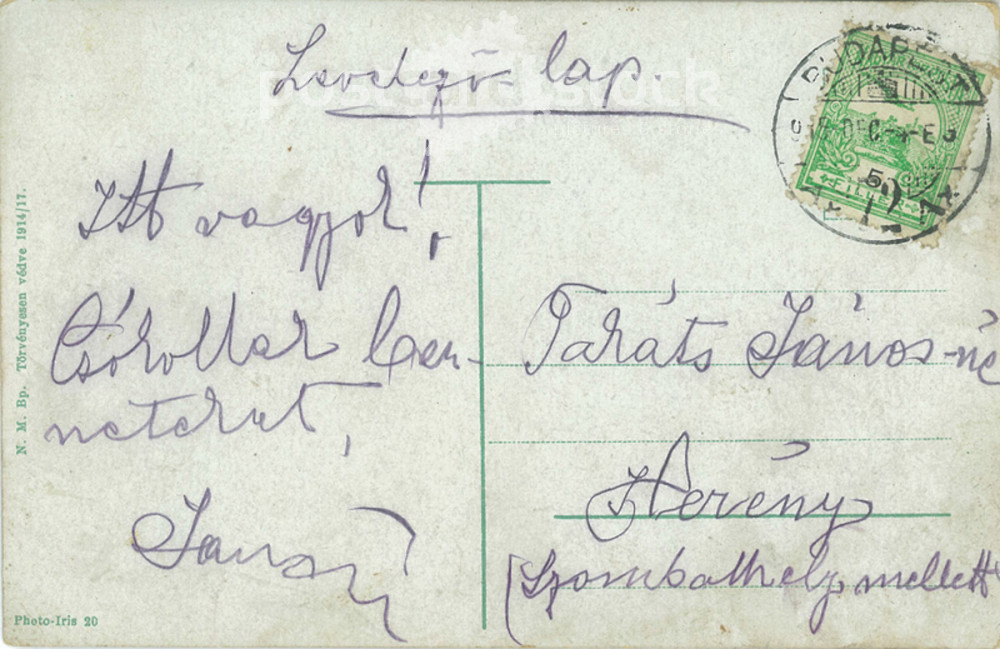 Levelező lap.
Itt vagyok!
Csókollak ben-
neteket,
János
Takáts János-né
Herény
(Szombathely mellett
N. M. Bp. Törvényesen védve 1914/17.
Photo-Iris 20
BUDAPEST
DEC.
FILLÉR